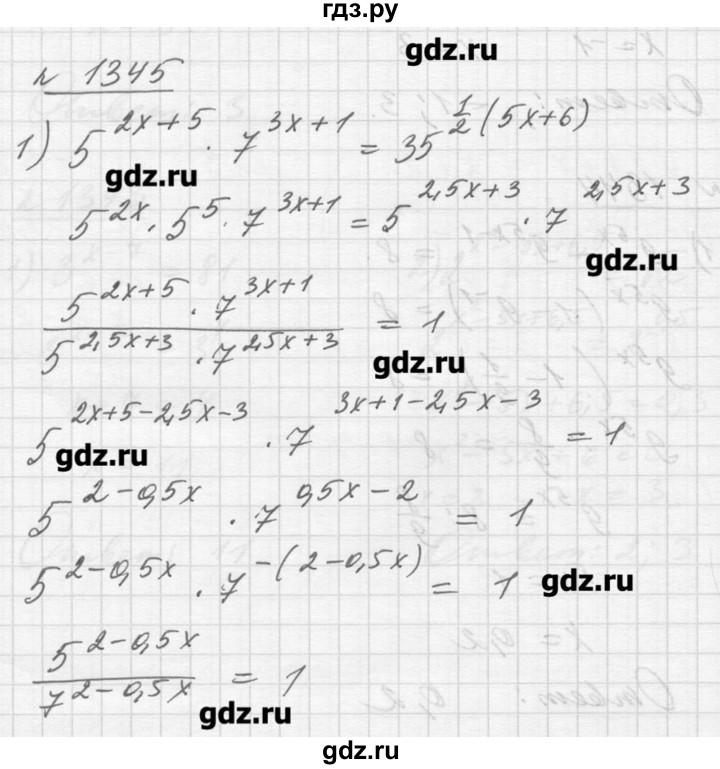 гдз.ру
gdz.ru
№ 1345
1) 5^{2x+5} · 7^{3x+1} = 35^{\frac{1}{2}(5x+6)}
gdz.ru
5^{2x} · 5^5 · 7^{3x+1} = 5^{2,5x+3} · 7^{2,5x+3}
gdz.ru
\frac{5^{2x+5} · 7^{3x+1}}{5^{2,5x+3} · 7^{2,5x+3}} = 1
gdz.ru
5^{2x+5-2,5x-3} · 7^{3x+1-2,5x-3} = 1
gdz.ru
5^{2-0,5x} · 7^{0,5x-2} = 1
5^{2-0,5x} · 7^{-(2-0,5x)} = 1
gdz.ru
\frac{5^{2-0,5x}}{7^{2-0,5x}} = 1
gdz.ru
gdz.ru